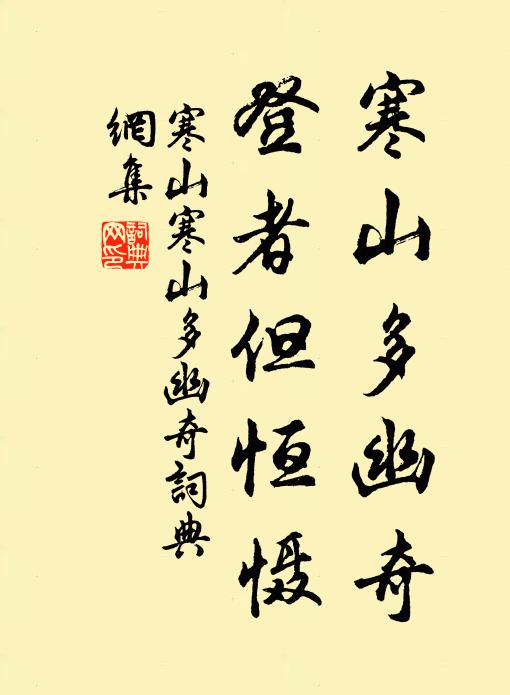 寒山多幽奇
登者但恒慑
寒山寒山多幽奇詞典
網集
詞典
网印